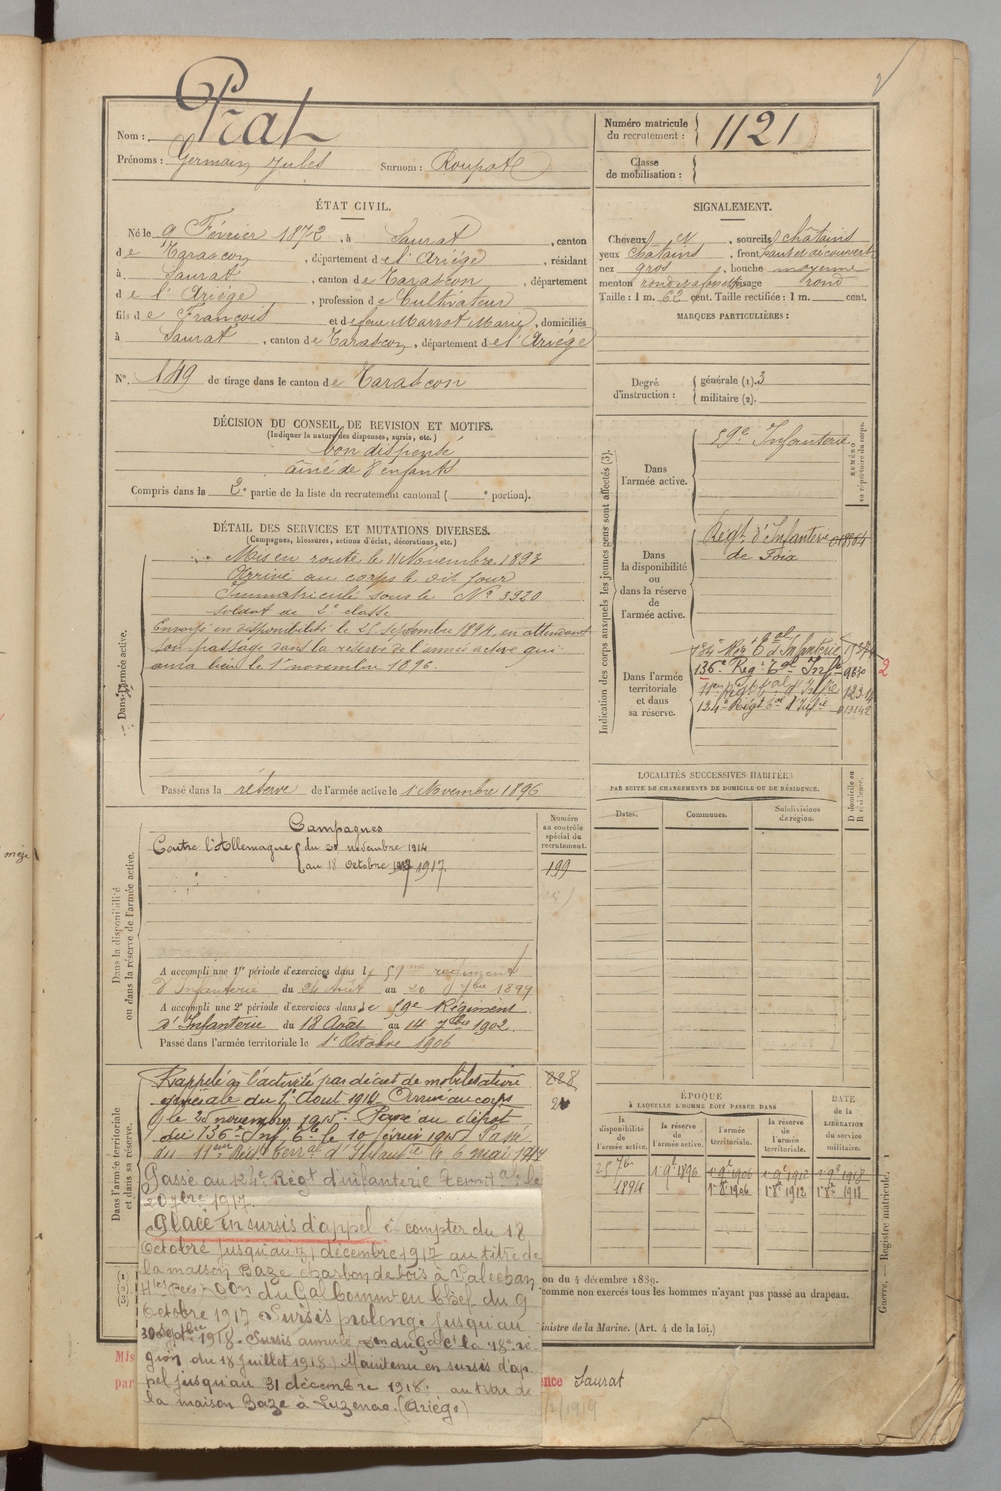 Nom : Prat
Prénoms : Germain Jules Surnom : Roupat
Numéro matricule du recrutement : 1121
Classe de mobilisation :
ÉTAT CIVIL.
Né le 9 Février 1872, à Saurat, canton
de Tarascon, département de l'Ariége, résidant
à Saurat, canton de Tarascon, département
de l'Ariége, profession de Cultivateur
fils de François et de feue Marrot Marie, domiciliés
à Saurat, canton de Tarascon, département de l'Ariége
N° 149 de tirage dans le canton de Tarascon
DÉCISION DU CONSEIL DE REVISION ET MOTIFS.
(Indiquer la nature des dispenses, sursis, etc.)
bon dispensé
aîné de 8 enfants
Compris dans la 2e partie de la liste du recrutement cantonal ( e portion).
SIGNALEMENT.
Cheveux, sourcils châtains
yeux châtains, front haut et découvert
nez gros, bouche moyenne
menton rond, visage rond
Taille : 1 m. 62 cent. Taille rectifiée : 1 m. cent.
MARQUES PARTICULIÈRES :
Degré d'instruction : générale (1). 3
militaire (2).
Indication des corps auxquels les jeunes gens sont affectés (3).
NUMÉRO au répertoire du corps.
Dans l'armée active.
59e Infanterie
Dans la disponibilité ou dans la réserve de l'armée active.
Régt d'Infanterie
de Foix
Dans l'armée territoriale et dans sa réserve.
134e Rég t al d'Infanterie
136e Reg t al Inf ie 9630
11em Regt t al d'Infie 12314
134e Régt t al d'Infie 013142
2
DÉTAIL DES SERVICES ET MUTATIONS DIVERSES.
(Campagnes, blessures, actions d'éclat, décorations, etc.)
Dans l'armée active.
Mis en route le 11 Novembre 1893
Arrivé au corps le dit jour
Immatriculé sous le N° 3920
soldat de 2e classe
Envoyé en disponibilité le 25 septembre 1894, en attendant
son passage dans la réserve de l'armée active qui
aura lieu le 1er novembre 1896.
Passé dans la réserve de l'armée active le 1er Novembre 1896
Dans la disponibilité ou dans la réserve de l'armée active.
Numéro au contrôle spécial du recrutement.
199
Campagnes
Contre l'Allemagne du 20 novembre 1914
au 18 Octobre 1917.
A accompli une 1re période d'exercices dans le régiment
d'Infanterie du 24 Août au 20 7bre 1899
A accompli une 2e période d'exercices dans le 59e Régiment
d'Infanterie du 18 Août au 14 7bre 1902.
Passé dans l'armée territoriale le 1er Octobre 1906
LOCALITÉS SUCCESSIVES HABITÉES
PAR SUITE DE CHANGEMENTS DE DOMICILE OU DE RÉSIDENCE.
Dates. Communes. Subdivisions de région. D domicile ou R résidence.
Dans l'armée territoriale et dans sa réserve.
828
Rappelé à l'activité par décret de mobilisation
générale du 1er Août 1914. Arrivé au corps
le 20 novembre 1915. Passé au dépôt
du 136e Inf. t le le 10 février 1915 Passé
au 11em Régt terr al d'Infanie le 6 mai 1917
Passé au 134e Régt d'infanterie territ ale le
20 7bre 1917.
Placé en sursis d'appel à compter du 18
Octobre jusqu'au 31 décembre 1917 au titre de
la maison Baze charbon de bois à
Octobre 1917 Sursis prolongé jusqu'au
30 septbre 1918. Sursis annulé
gion du 18 juillet 1918) Maintenu en sursis d'ap-
pel jusqu'au 31 décembre 1918. au titre de
la maison Baze à Luzenac. (Ariége)
ÉPOQUE
À LAQUELLE L'HOMME DOIT PASSER DANS
la disponibilité de l'armée active. la réserve de l'armée active. l'armée territoriale. la réserve de l'armée territoriale. DATE de la LIBÉRATION du service militaire.
25 7bre 1894 1er 9bre 1896 1er 9bre 1906 1er 9bre 1912 1er 9bre 1918
1er 8bre 1906 1er 8bre 1912 1er 8bre 1918
on du 4 décembre 1889.
comme non exercés tous les hommes n'ayant pas passé au drapeau.
inistre de la Marine. (Art. 4 de la loi.)
Guerre. — Registre matricule. 1
(1)
(2)
(3)
Mis
par
ence Saurat